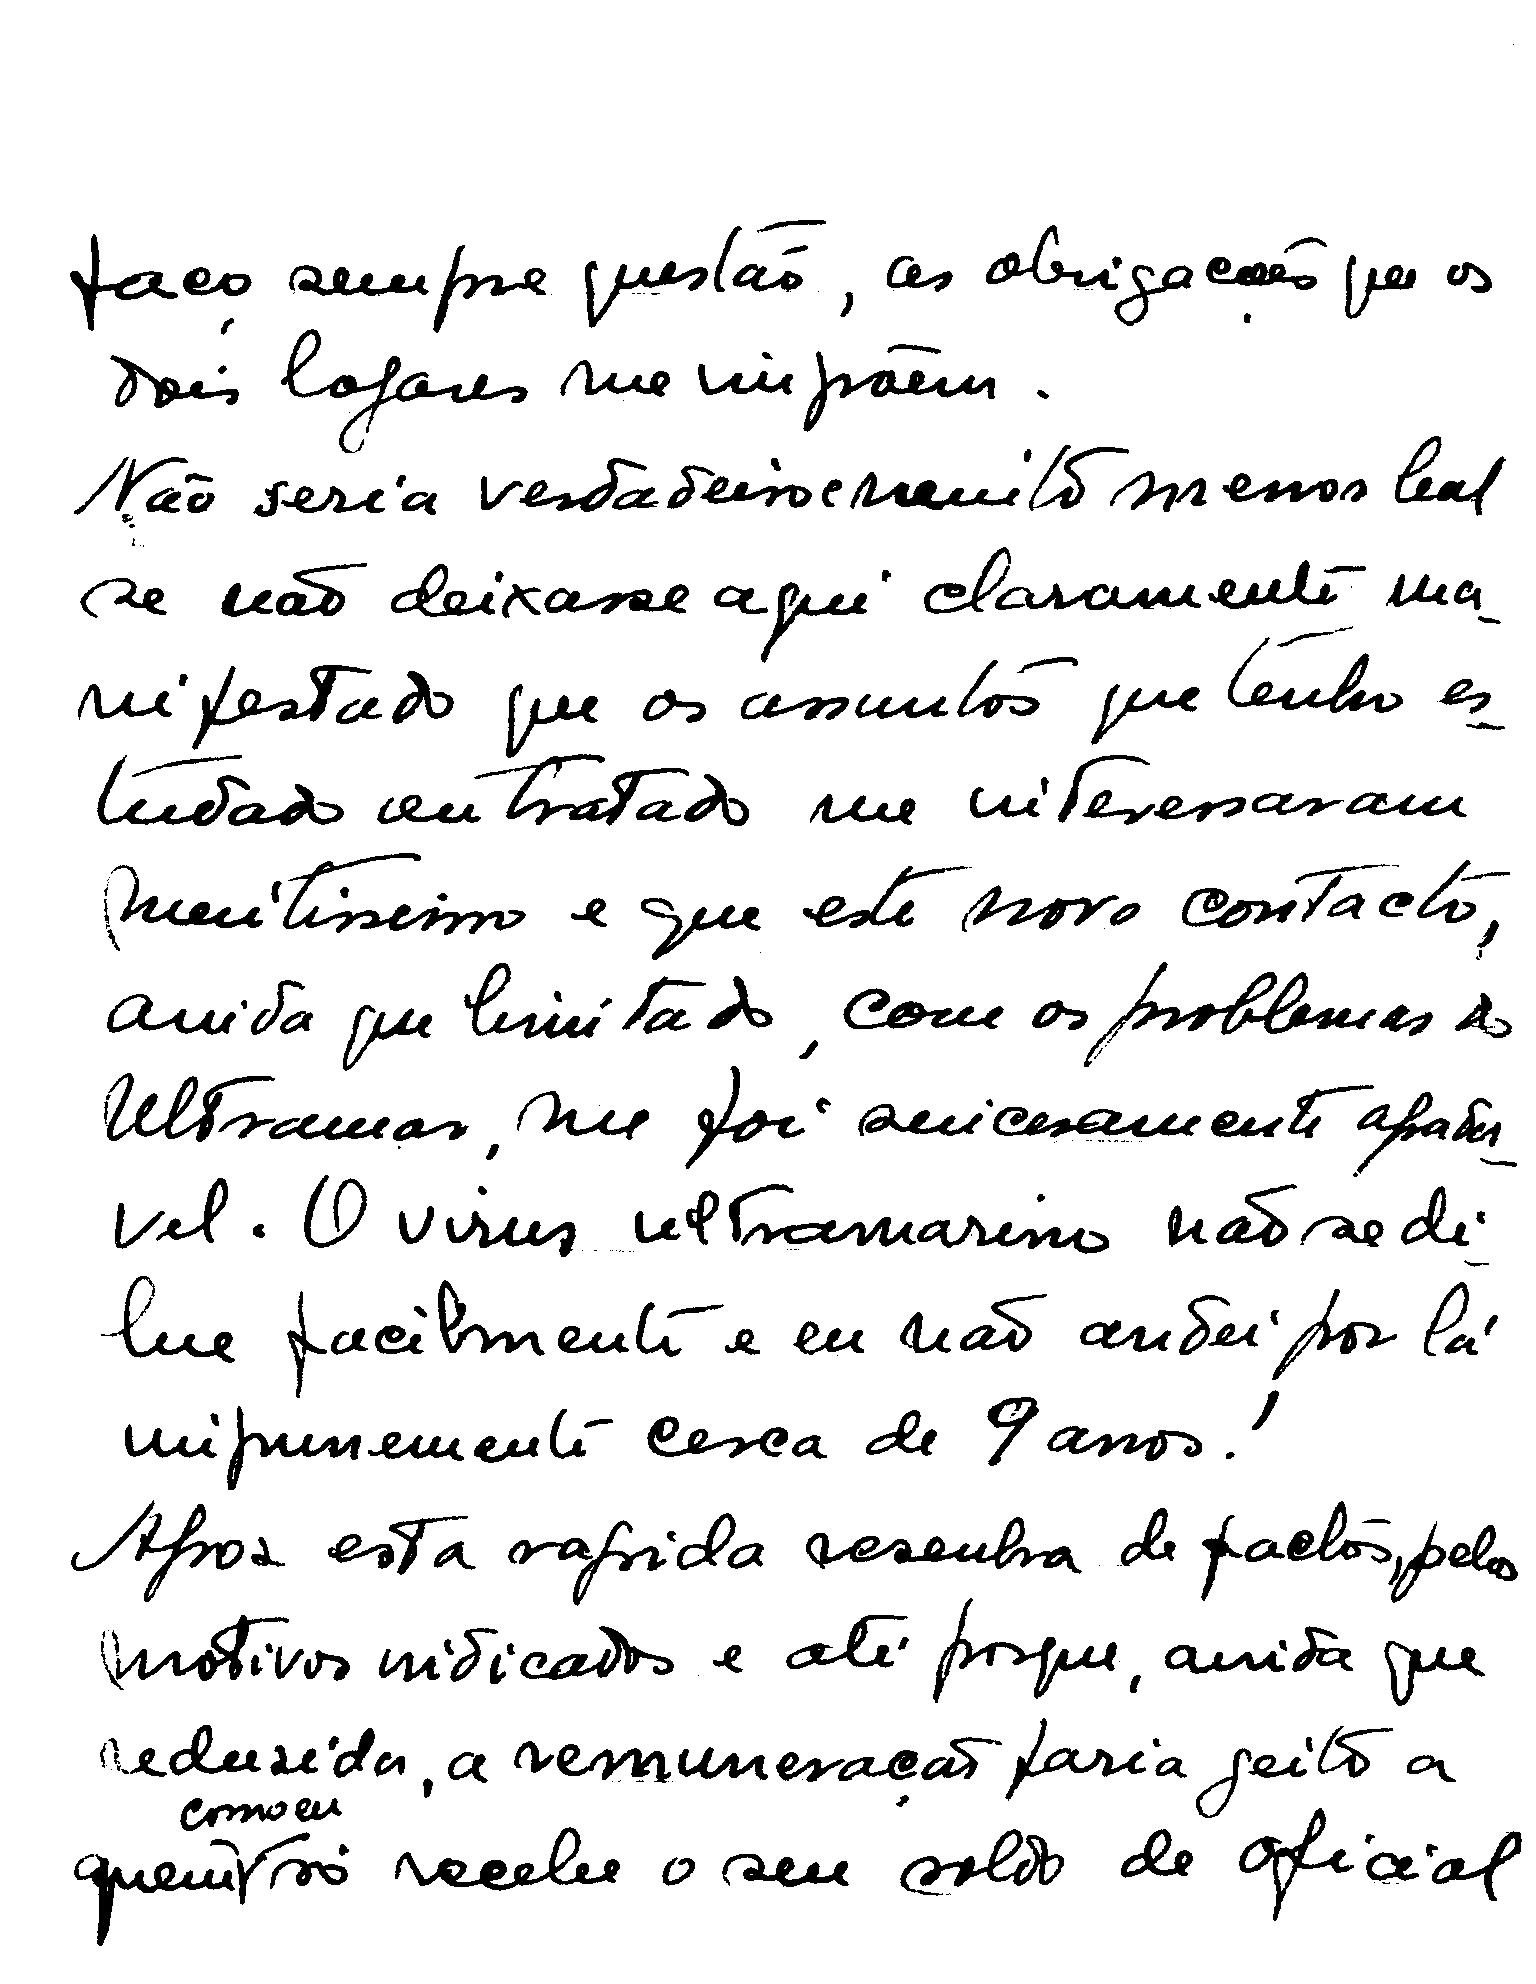 faço sempre questão, as obrigações que os
dois logares me impõem.
Não seria verdadeiro e muito menos leal
se não deixasse aqui claramente ma-
nifestado que os assuntos que tenho es-
tudado ou tratado me interessaram
muitissimo e que este novo contacto,
ainda que limitado, com os problemas do
Ultramar, me foi sinceramente agradá-
vel. O virus ultramarino não se di-
lue facilmente e eu não andei por lá
impunemente cerca de 9 anos!
Apoz esta rapida resenha de factos, pelos
motivos indicados e até porque, ainda que
reduzida, a remuneração faria geito a
como eu
quem só recebe o seu soldo de oficial